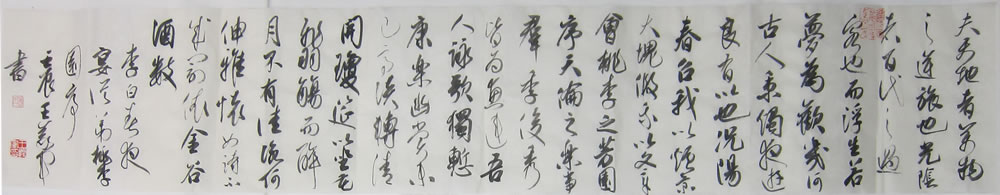 夫天地者萬物
之逆旅也光陰
者百代之過
客也而浮生若
夢為歡幾何
古人秉燭夜遊
良有以也況陽
春召我以煙景
大塊假我以文章
會桃李之芳園
序天倫之樂事
羣季俊秀
皆為惠連吾
人詠歌獨慙
康樂幽賞未
已高談轉清
開瓊筵以坐花
飛羽觴而醉
月不有佳詠何
伸雅懷如詩不
成罰依金谷
酒數
李白春夜
宴從弟桃李
園序
壬辰王
書